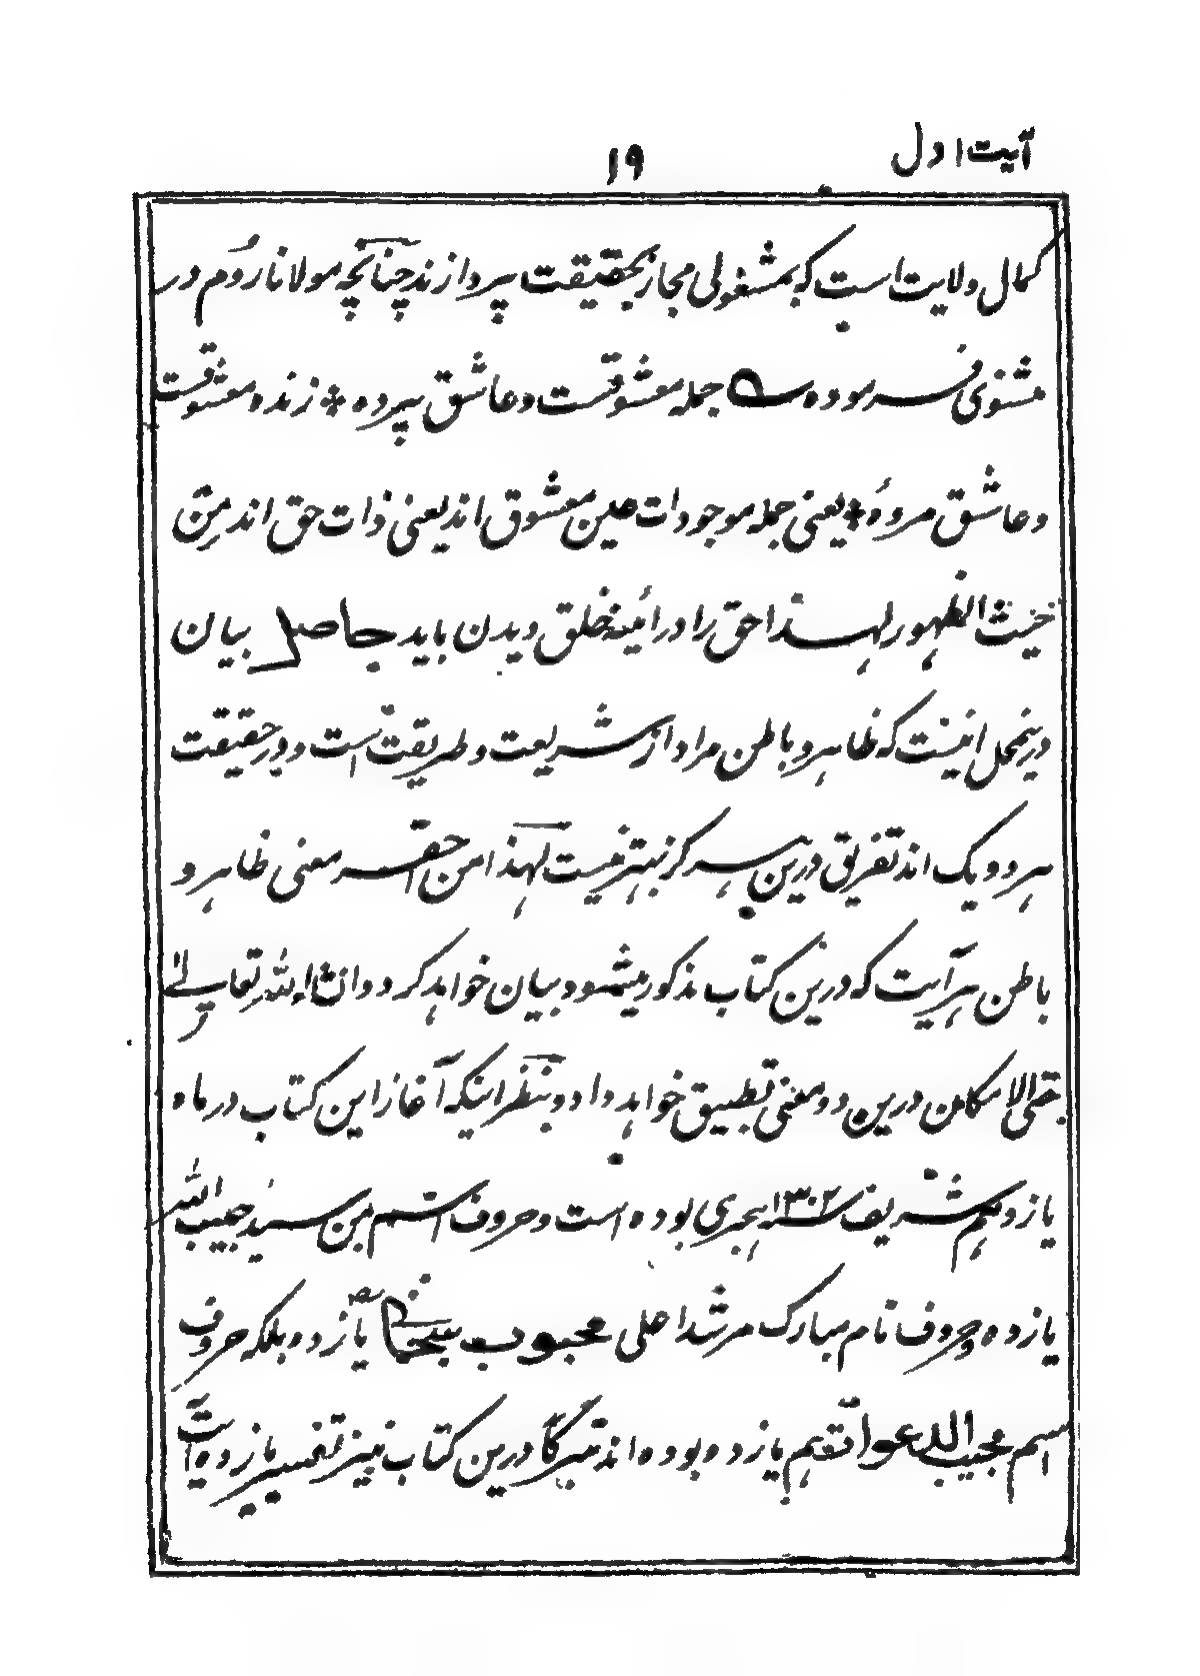 آیت اول
۱۹
کمال ولایت است کہ بمشغولی مجاز بحقیقت پردازند چنانچہ مولانا روم در
مثنوی فرمودہ ؎ جملہ معشوقست و عاشق پردہ * زندہ معشوقست
و عاشق مردہ * یعنی جملہ موجودات عین معشوق اند یعنی ذات حق اند من
حیث الظہور لہذا حق را در آئینہ خلق دیدن باید حاصل بیان
درینمحل اینست کہ ظاہر و باطن مراد از شریعت و طریقت است و در حقیقت
ہر دو یک اند تفریق درین ہر کز بہتر نیست لہذا من احقر معنی ظاہر و
باطن ہر آیت کہ درین کتاب مذکور میشود بیان خواہد کرد و انشاء اللہ تعالیٰ
بقی الامکان درین دو معنی تطبیق خواہد داد و بنظر اینکہ آغاز این کتاب در ماہ
یازدہم شریف سنہ ۱۳۰۲ ہجری بودہ است و حروف اسم من سید حبیب اللہ
یازدہ و حروف نام مبارک مرشد اعلی محبوب سبحانی یازدہ بلکہ حروف
اسم مجیب اللدعوات ہم یازدہ بودہ اند تبرکاً درین کتاب نیز تفسیر یازدہ آیت